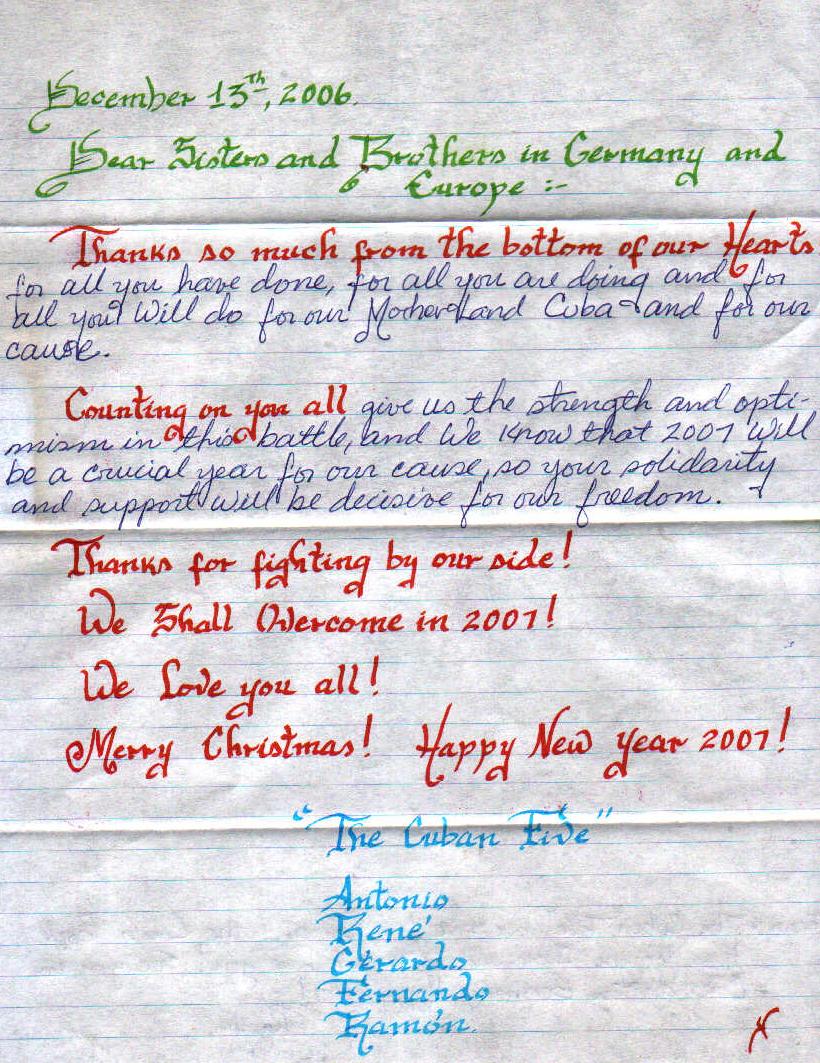 December 13th, 2006.
Dear Sisters and Brothers in Germany and
Europe :-
Thanks so much from the bottom of our Hearts
for all you have done, for all you are doing and for
all you will do for our Motherland Cuba and for our
cause.
Counting on you all give us the strength and opti-
mism in this battle, and We Know that 2007 will
be a crucial year for our cause, so your solidarity
and support will be decisive for our freedom.
Thanks for fighting by our side!
We Shall Overcome in 2007!
We Love you all!
Merry Christmas! Happy New Year 2007!
"The Cuban Five"
Antonio
René
Gerardo
Fernando
Ramón.